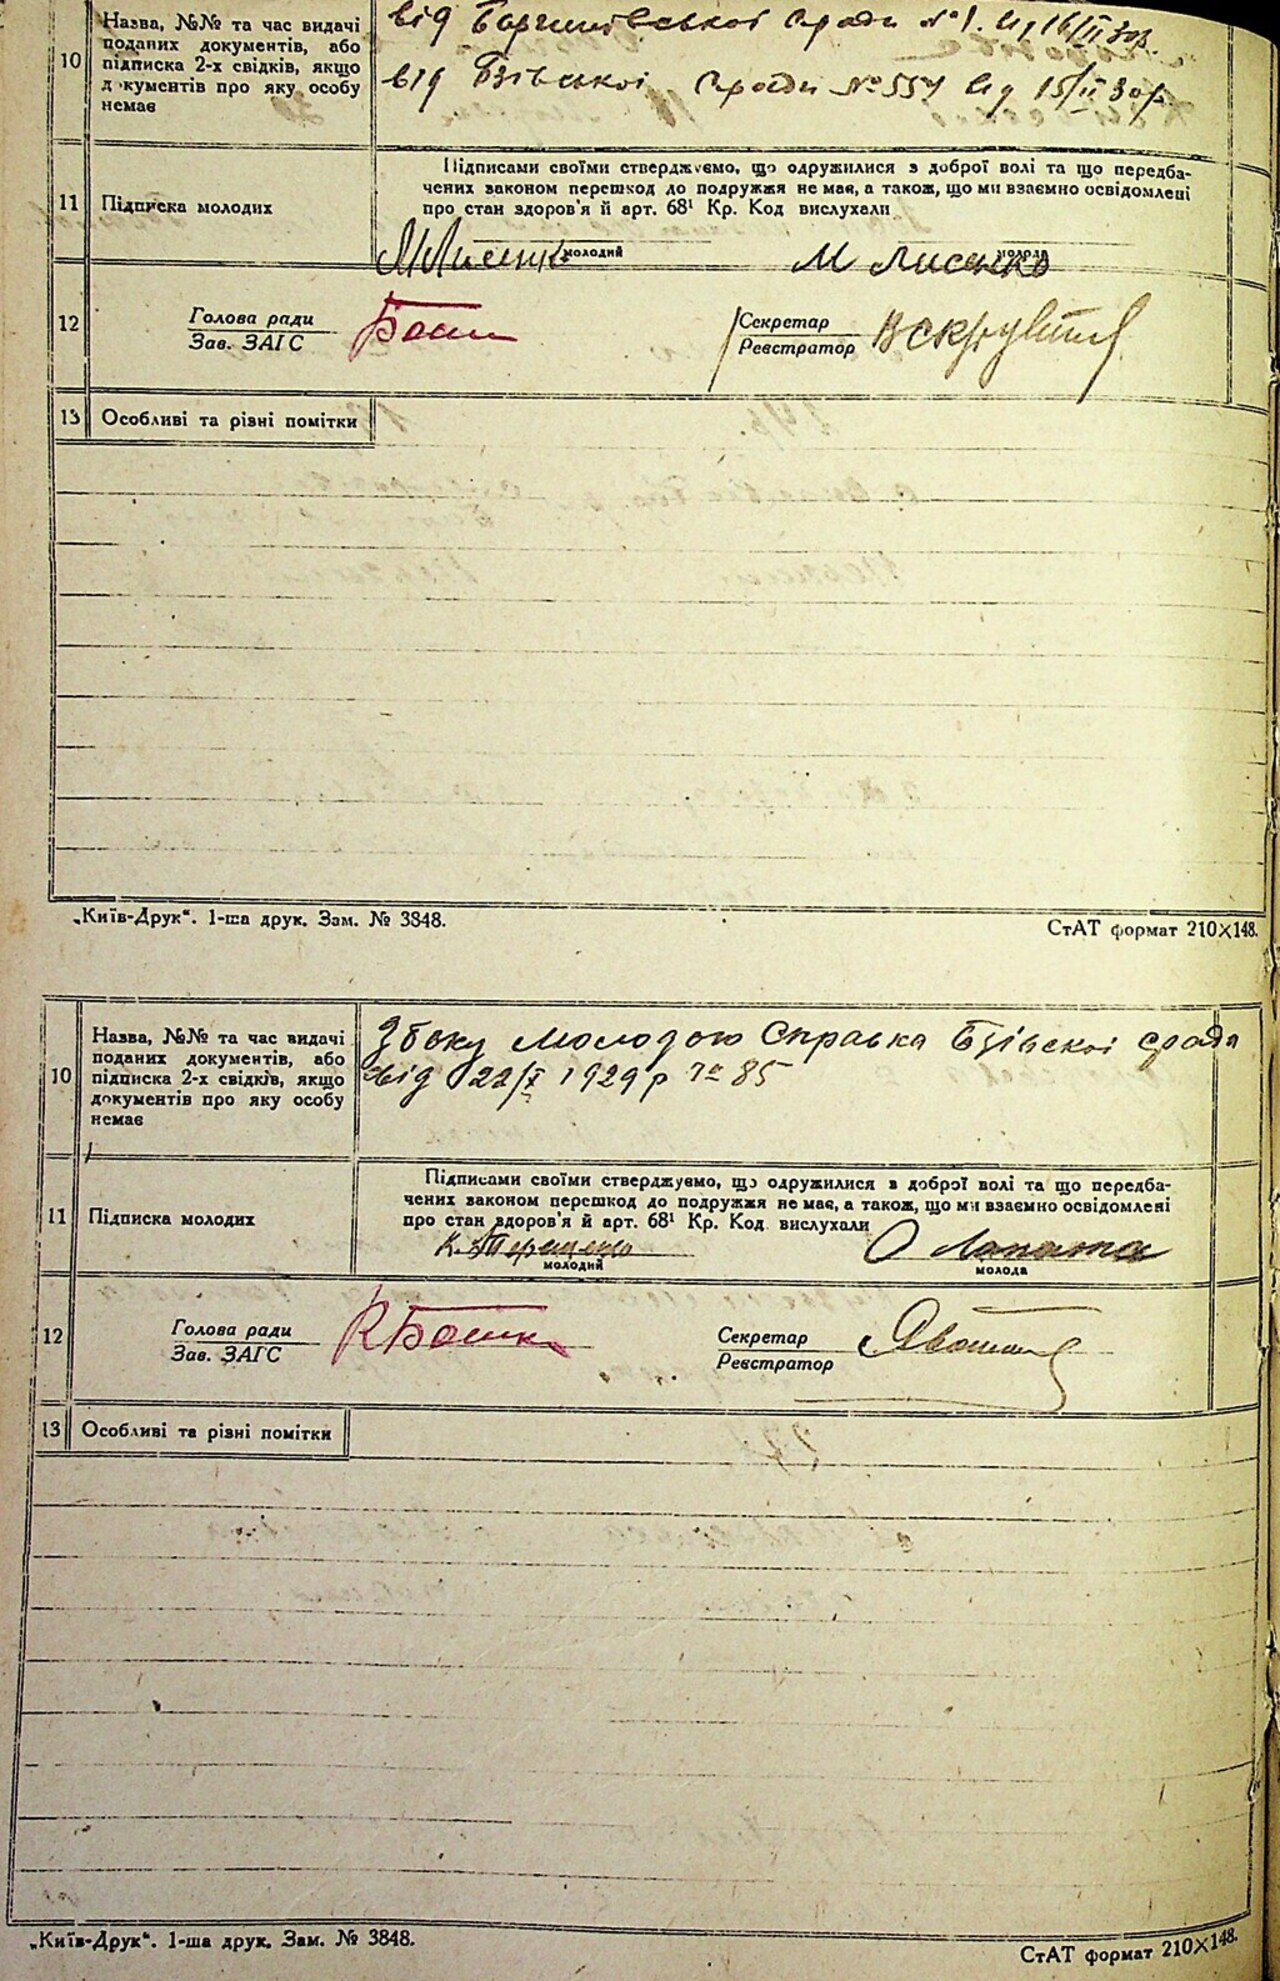 10
Назва, №№ та час видачі
поданих документів, або
підписка 2-х свідків, якщо
д кументів про яку особу
немає
від сради №1. від 16/II 30р.
від Бзівської сради №554 від 15/II 30р.
11
Підписка молодих
Підписами своїми стверджуємо, що одружилися з доброї волі та що передба-
чених законом перешкод до подружжя не має, а також, що ми взаємно освідомлені
про стан здоров'я й арт. 68¹ Кр. Код вислухали
М Лисенко
молодий
М Лисенко
молода
12
Голова ради
Зав. ЗАГС
Секретар
Реєстратор
13
Особливі та різні помітки
„Київ-Друк“. 1-ша друк. Зам. № 3848.
СтАТ формат 210×148.
10
Назва, №№ та час видачі
поданих документів, або
підписка 2-х свідків, якщо
документів про яку особу
немає
Збоку Молодою Справка Бзівскої сради
від 22/X 1929 р № 85
11
Підписка молодих
Підписами своїми стверджуємо, що одружилися з доброї волі та що передба-
чених законом перешкод до подружжя не має, а також, що ми взаємно освідомлені
про стан здоров'я й арт. 68¹ Кр. Код вислухали
К. Терещенко
молодий
О Лопата
молода
12
Голова ради
Зав. ЗАГС
Секретар
Реєстратор
13
Особливі та різні помітки
„Київ-Друк“. 1-ша друк. Зам. № 3848.
СтАТ формат 210×148.